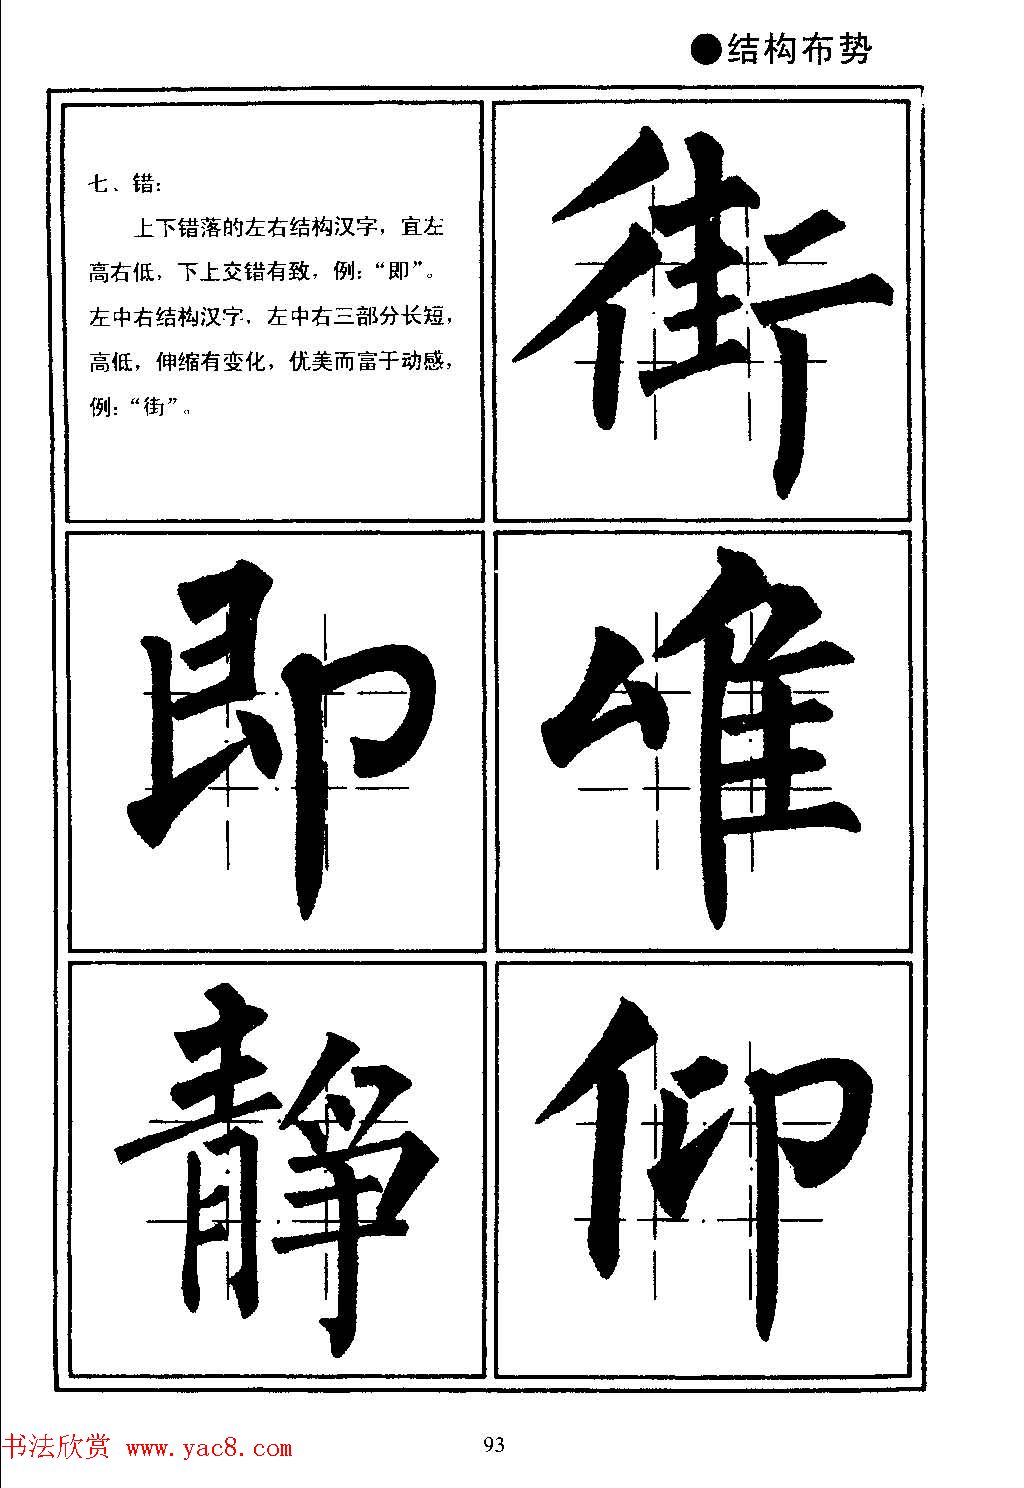 ●结构布势
七、错：
上下错落的左右结构汉字，宜左
高右低，下上交错有致，例：“即”。
左中右结构汉字，左中右三部分长短，
高低，伸缩有变化，优美而富于动感，
例：“街”。
街
即
唯
静
仰
书法欣赏 www.yac8.com
93